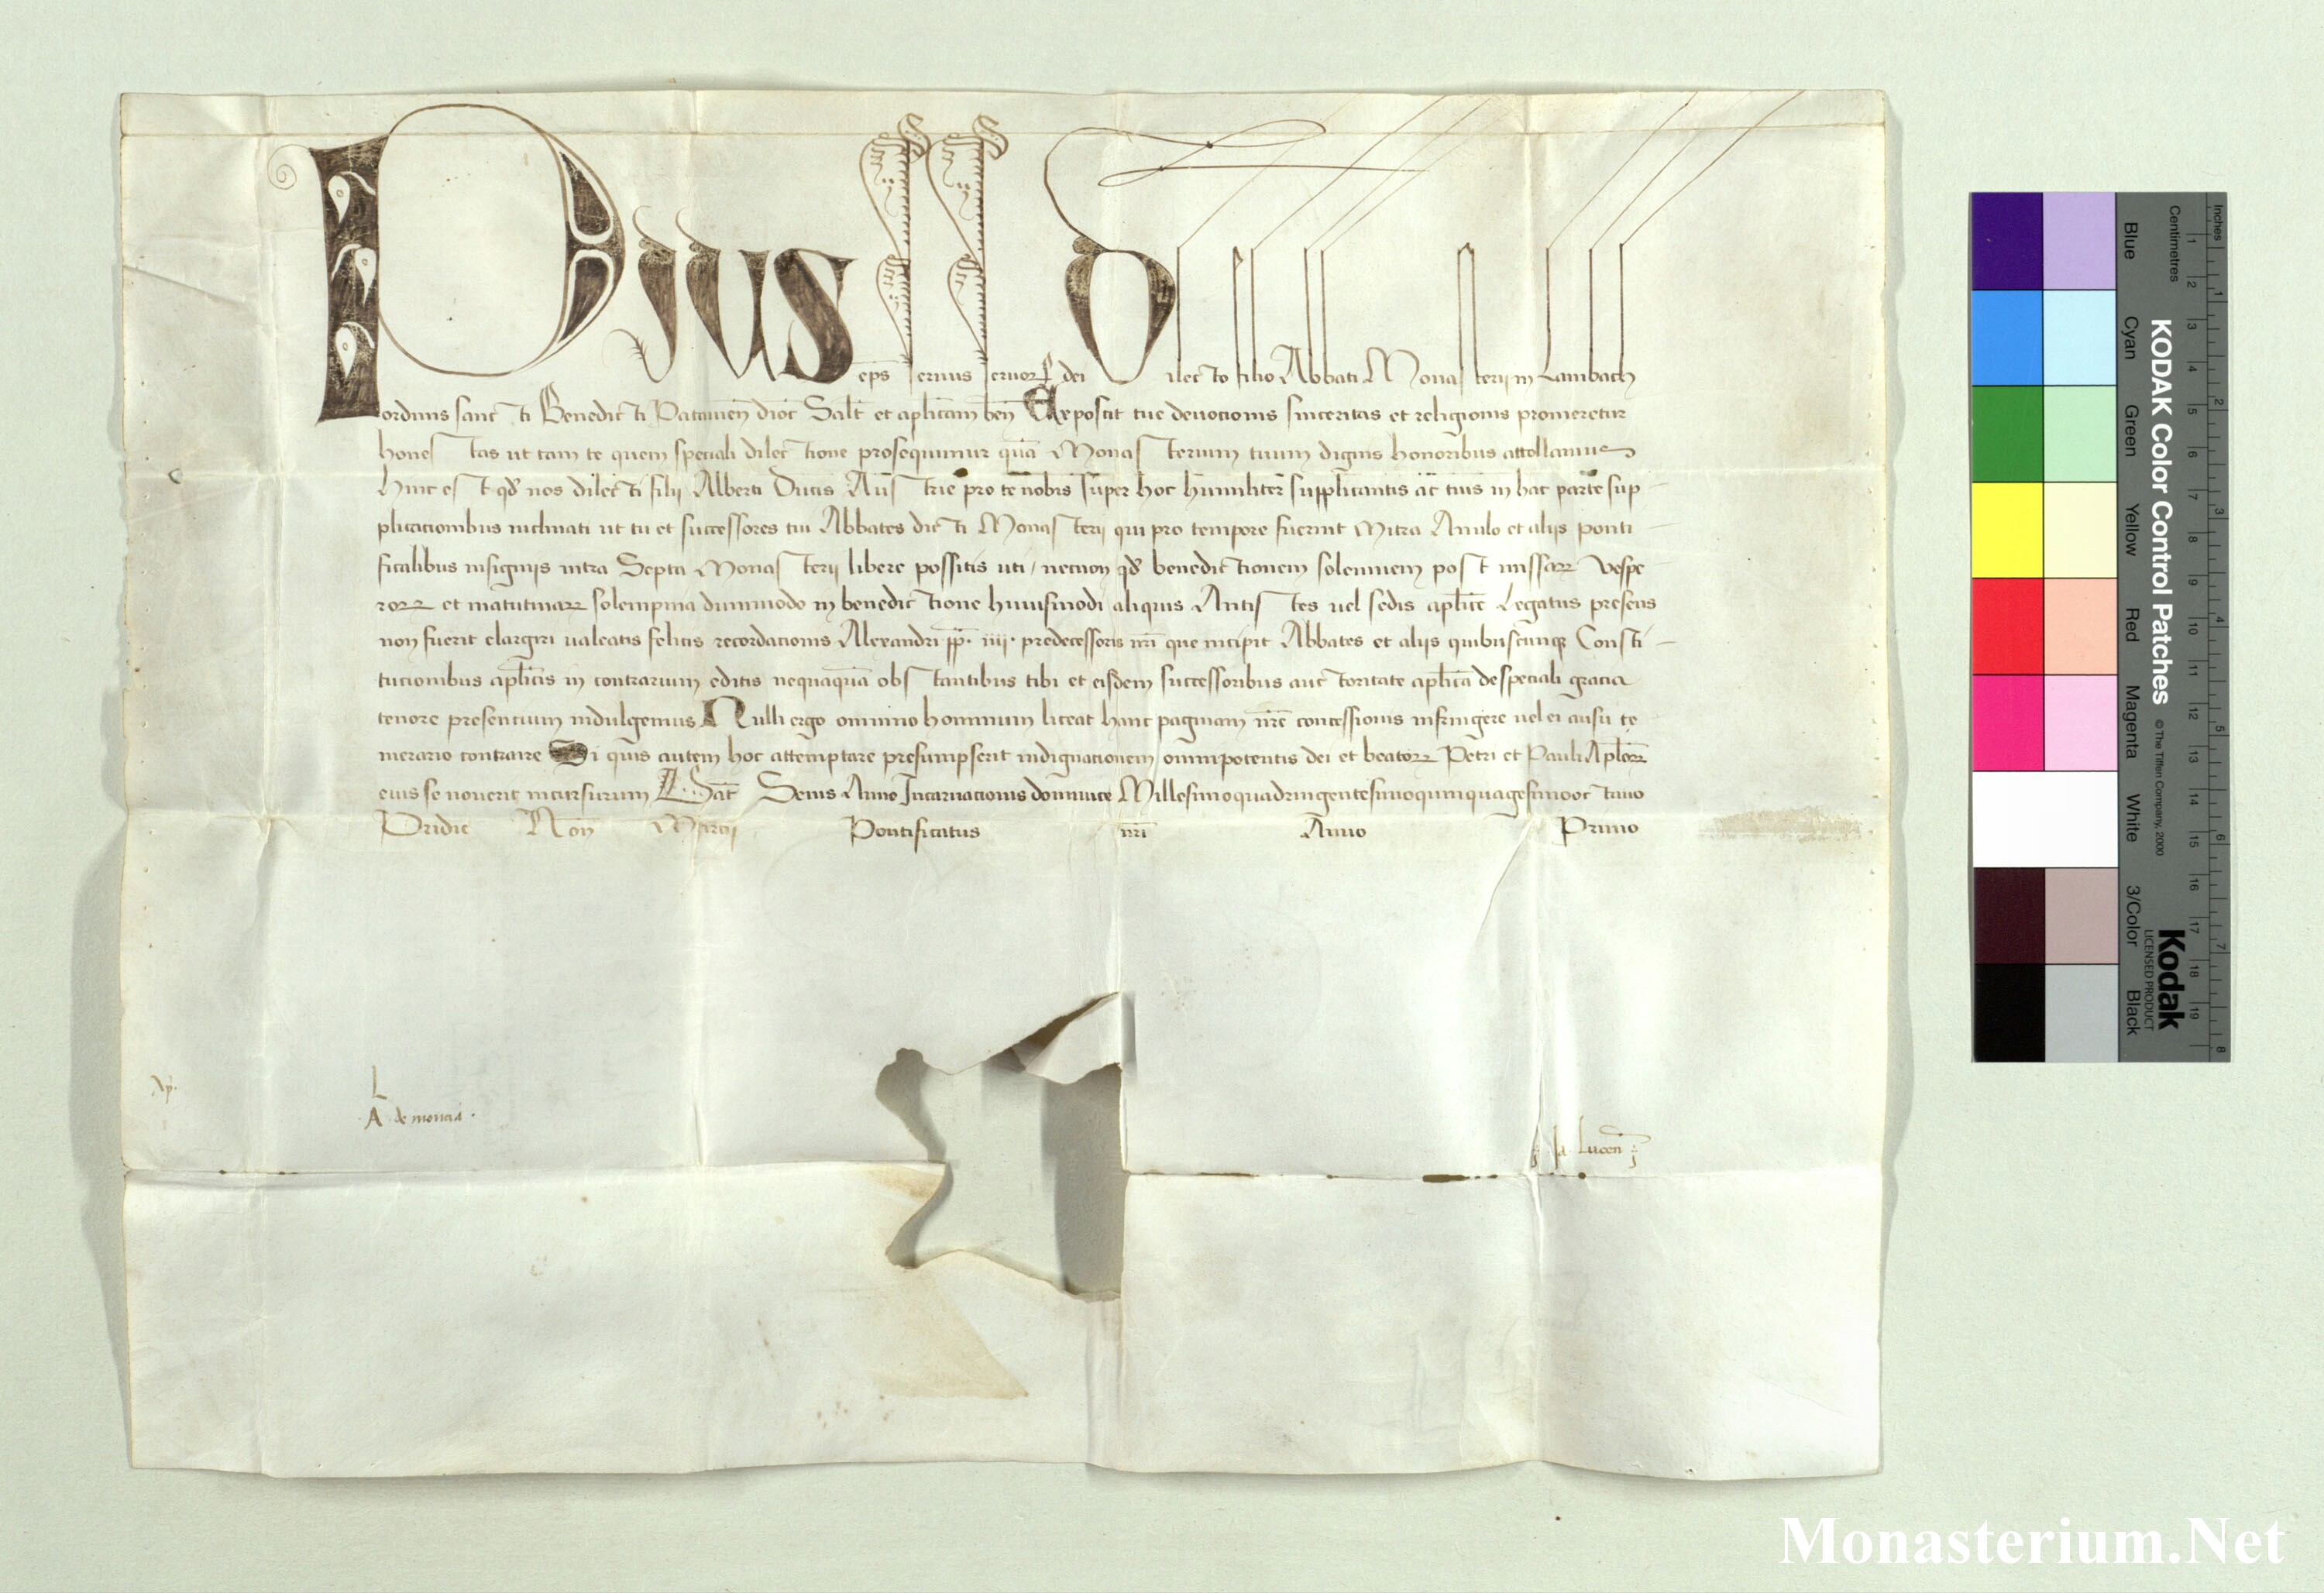 Pius eps seruus seruorꝝ dei Dilecto filio Abbati Monasterij in Lambach
ordinis sancti Benedicti Patauien̄ dioc̄ Salt̄ et aplicam ben̄ Exposcit tue deuocionis sinceritas et religionis promeretur
honestas ut tam te quem speciali dilectione prosequimur quā Monasterium tuum dignis honoribus attollamus
Hinc est qđ nos dilecti filii Alberti Ducis Austrie pro te nobis super hoc humiliter supplicantis ac tuis in hac parte sup
plicacionibus inclinati ut tu et successores tui Abbates dicti Monasterij qui pro tempore fuerint Mitra Anulo et aliis ponti
ficalibus insigniis intra Septa Monasterij libere possitis uti / necnon qđ benedictionem solennem post missarꝝ vespe
rorꝝ et matutinarꝝ solempnia dummodo in benedictione huiusmodi aliquis Antistes uel sedis aplice Legatus presens
non fuerit elargiri ualeatis felicis recordacionis Alexandri pp̄. iiij. predecessoris nr̄i que incipit Abbates et aliis quibuscunqꝫ Consti
tucionibus aplicis in contrarium editis nequaquā obstantibus tibi et eisdem successoribus auctoritate aplica de speciali gracia
tenore presentium indulgemus Nulli ergo omnino hominum liceat hanc paginam nr̄e concessionis infringere uel ei ausu te
merario contraire Si quis autem hoc attemptare presumpserit indignationem omnipotentis dei et beatorꝝ Petri et Pauli Aplorꝝ
eius se nouerit incursurum Dat̄ Senis Anno Incarnacionis dominice Millesimoquadringentesimoquinquagesimooctauo
Pridie Non̄ Marcij Pontificatus nr̄i Anno Primo
L
A de moncia .
Ja. Lucen̄
Inches
Centimetres
1 2 3 4 5 6 7 8
1 2 3 4 5 6 7 8 9 10 11 12 13 14 15 16 17 18 19
KODAK Color Control Patches © The Tiffen Company, 2000
Kodak
LICENSED PRODUCT
Blue Cyan Green Yellow Red Magenta White 3/Color Black
Monasterium.Net